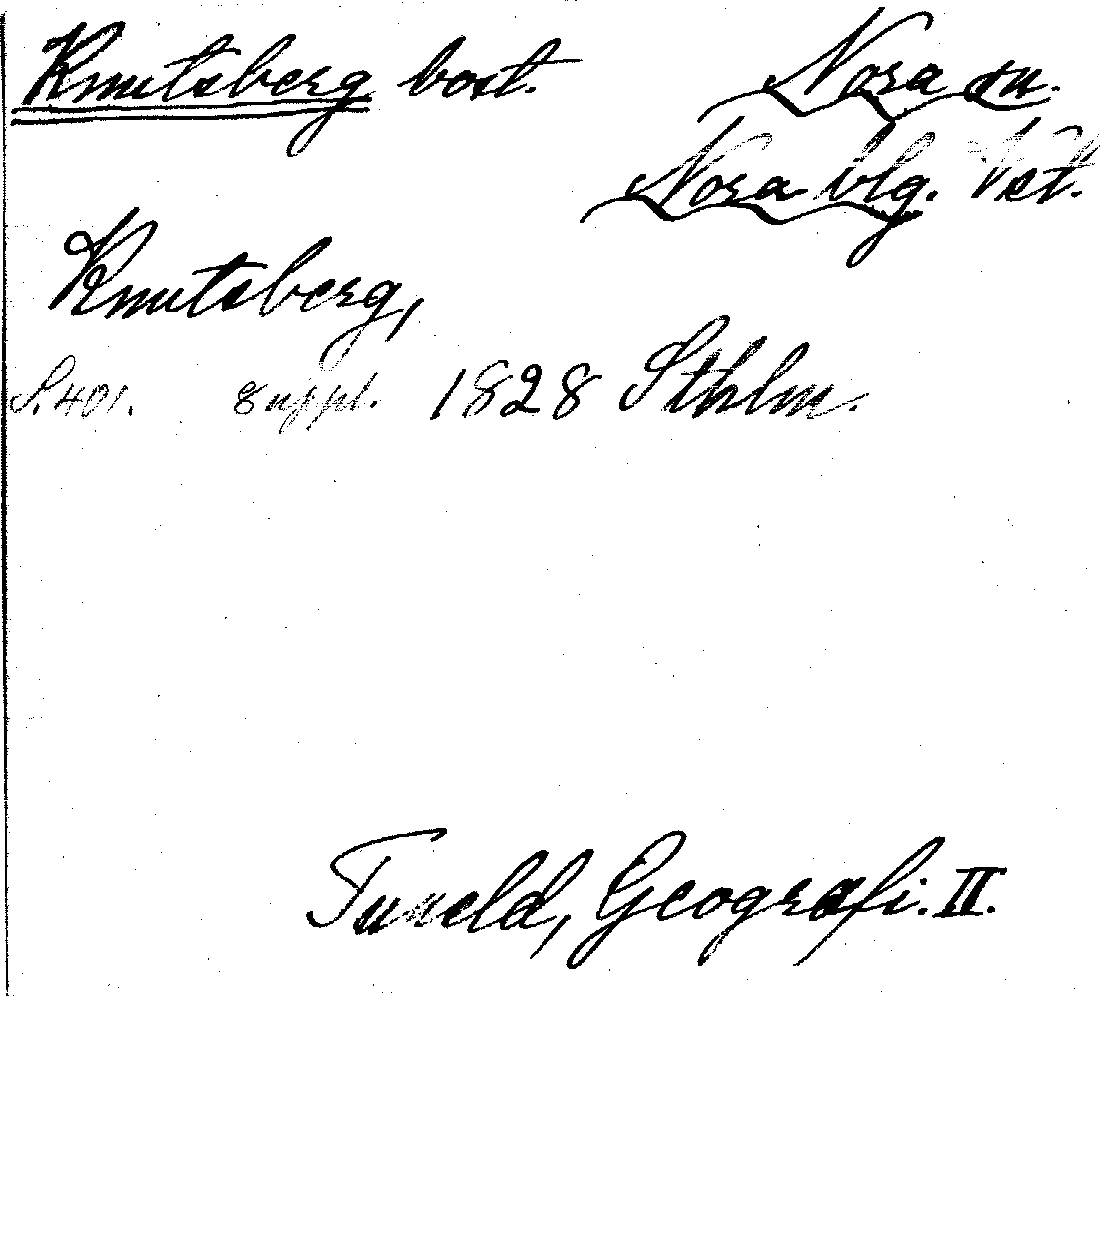 Knutsberg bost. Nora sn.
Nora blg. Vstl.
Knutsberg,
S. 401. 8 uppl. 1828 Sthlm.
Tuneld, Geografi. II.